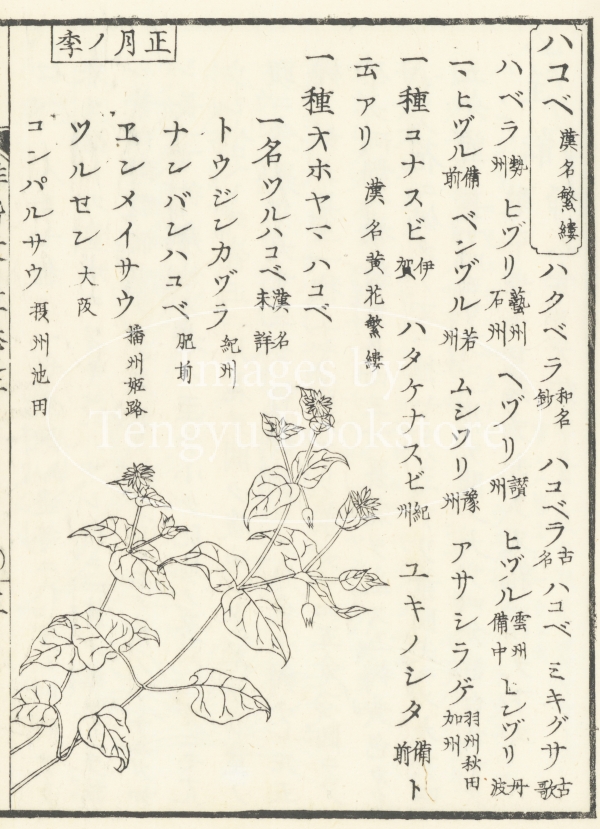 ハコベ 漢名繁縷 ハクベラ 和名鈔 ハコベラ 古名 ハコベ ミキグサ 古歌
ハベラ 勢州 ヒヅリ 藝州石州 ヘヅリ 讃州 ヒヅル 雲州備中 ヒンヅリ 丹波
一、ヒヅル 備前 ベンヅル 若州 ムシツリ 豫州 アサシラゲ 羽州秋田加州
一種コナスビ 伊賀 ハタケナスビ 紀州 ユキノシタ 備前 ト
云アリ 漢名黄花繁縷
一種大ホヤマハコベ
一名ツルハコベ 漢名未詳
トウジンカヅラ 紀州
ナンバンハコベ 肥前
ヱンメイサウ 播州姫路
ツルセン 大阪
コンパルサウ 摂州池田
正月ノ季
Images by
Tengyu Bookstore